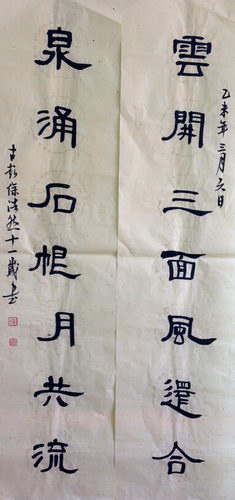 乙未年三月六日
雲開三面風還合
泉涌石根月共流
古彭徐浩然十一歲書